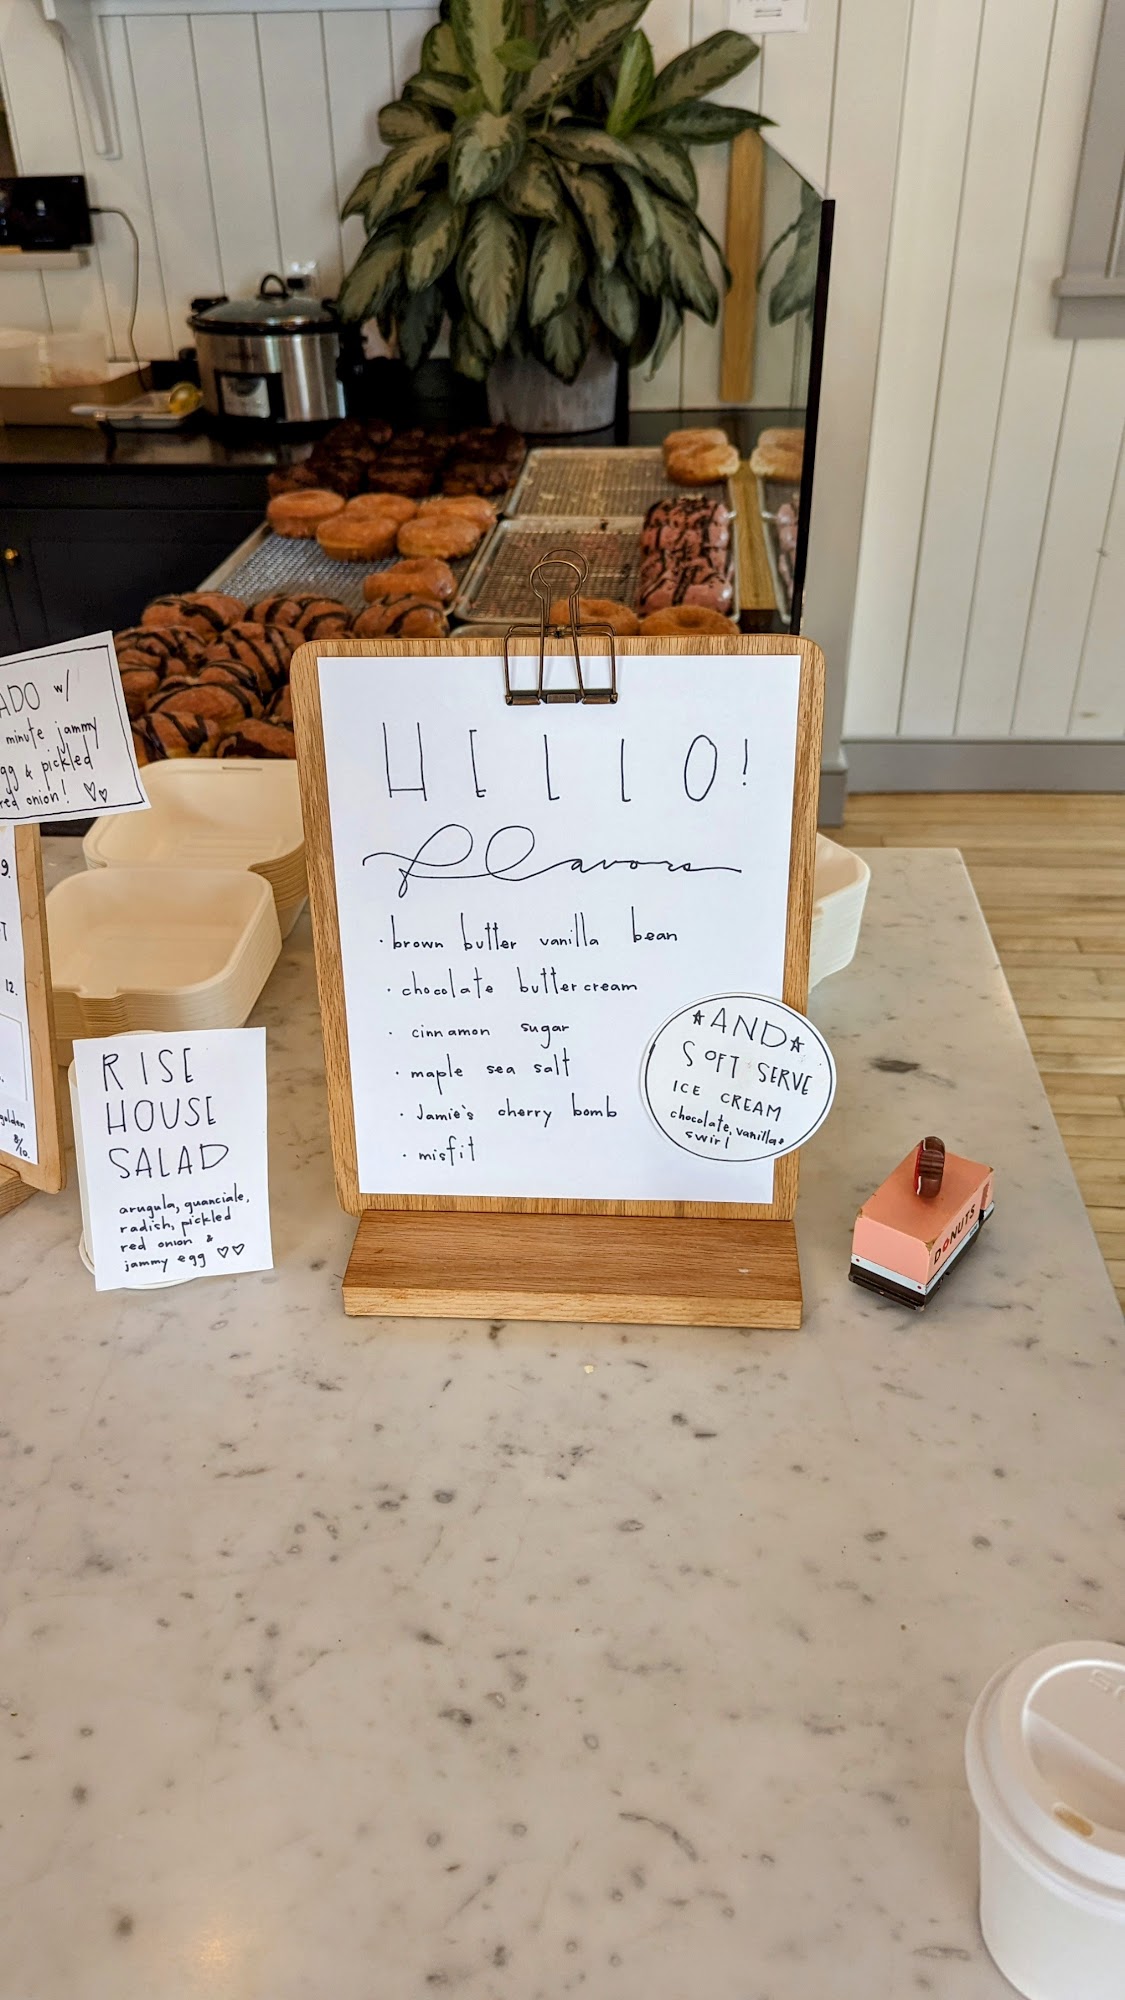 ADO w/
minute jammy
gg & pickled
red onion!
9.
12.
golden
RISE
HOUSE
SALAD
arugula, guanciale,
radish, pickled
red onion &
jammy egg
HELLO!
flavors
• brown butter vanilla bean
• chocolate buttercream
• cinnamon sugar
• maple sea salt
• Jamie's cherry bomb
• misfit
AND
SOFT SERVE
ICE CREAM
chocolate, vanilla &
swirl
DONUTS